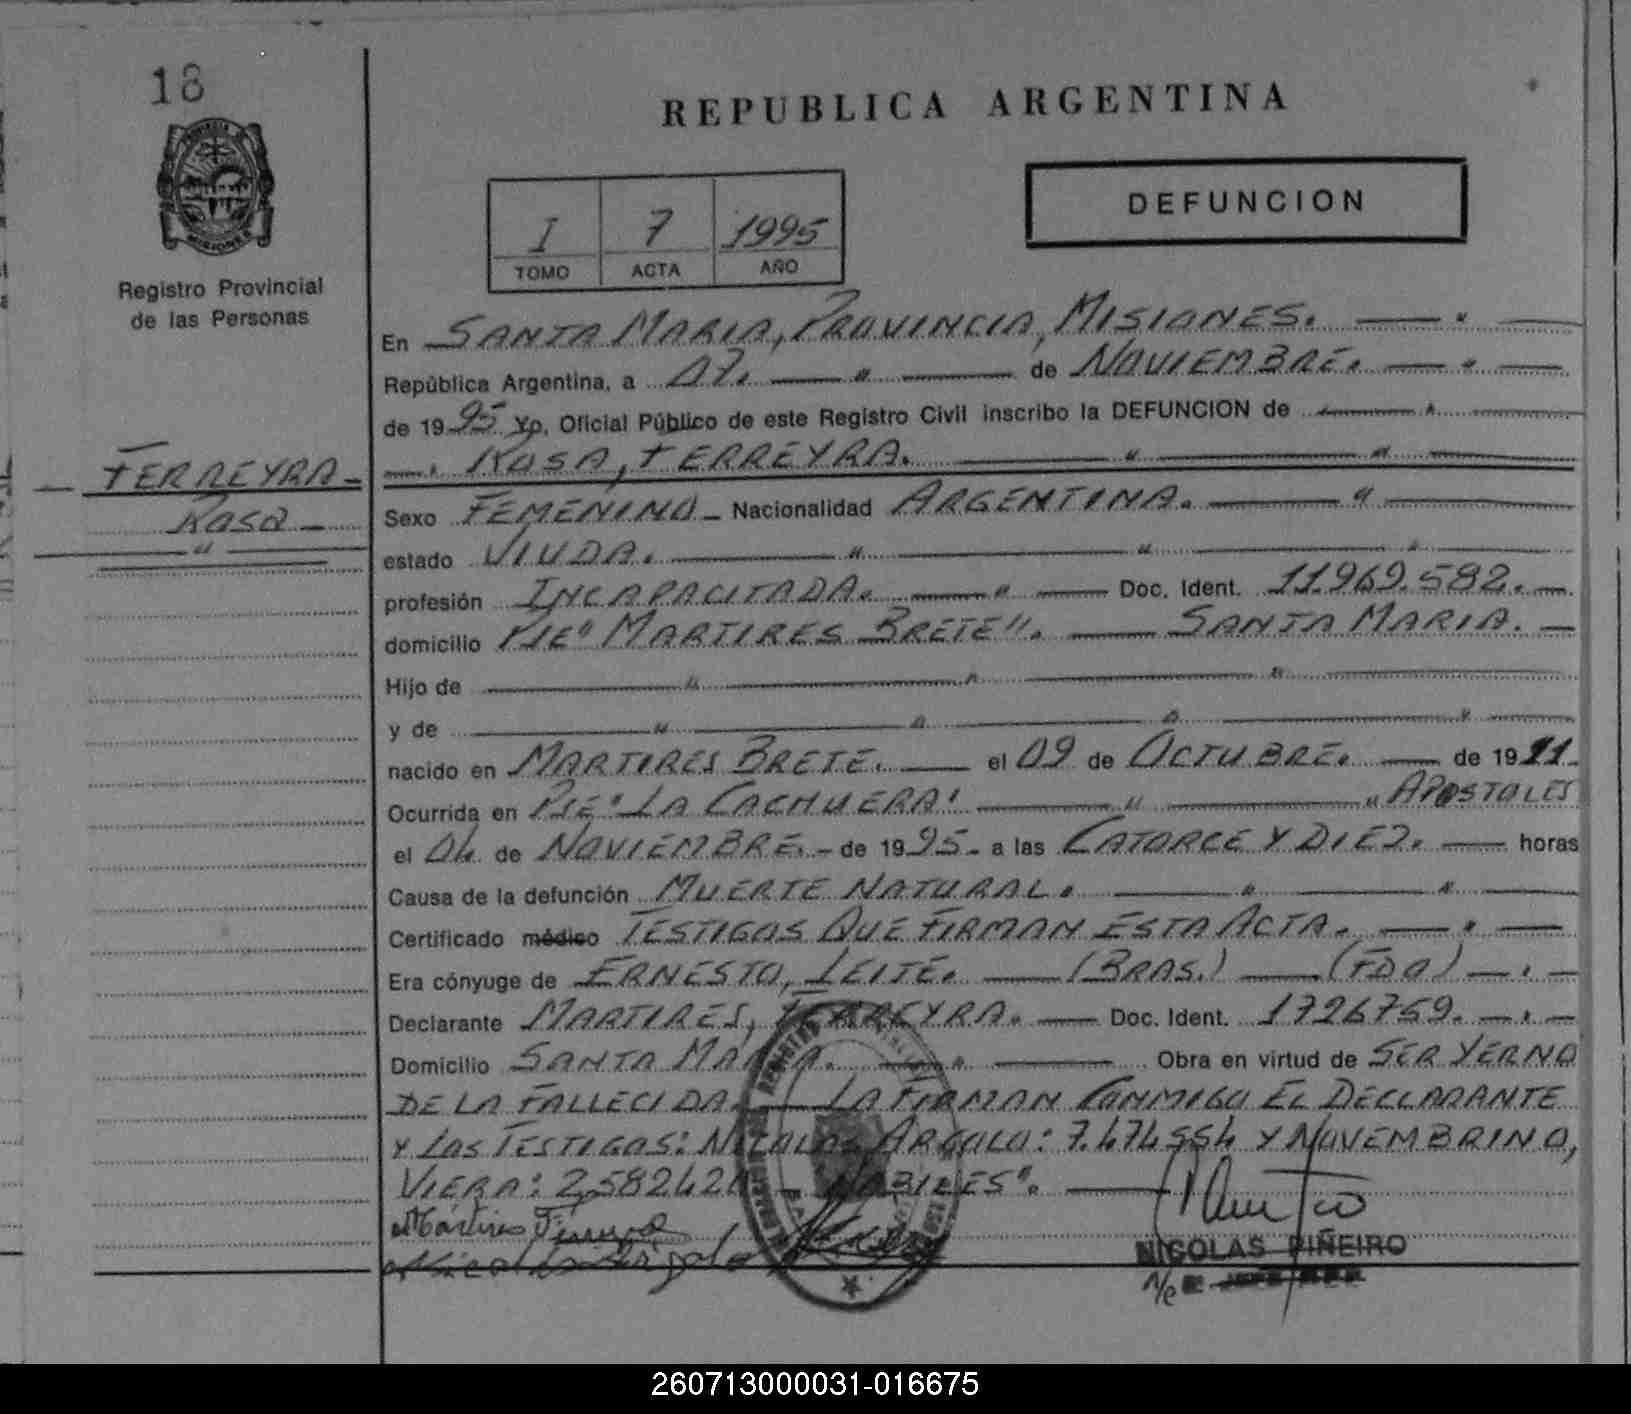 18
REPUBLICA ARGENTINA
PROVINCIA DE
MISIONES
Registro Provincial
de las Personas
I 7 1995
TOMO ACTA AÑO
DEFUNCION
En SANTA MARIA, PROVINCIA, MISIONES.
República Argentina, a 07. de NOVIEMBRE.
de 1995 yo, Oficial Público de este Registro Civil inscribo la DEFUNCION de
ROSA, FERREYRA.
FERREYRA
Rosa
Sexo FEMENINO Nacionalidad ARGENTINA.
estado VIUDA.
profesión INCAPACITADA. Doc. Ident. 11.969.582.
domicilio PJE" MARTIRES BRETE". SANTA MARIA.
Hijo de
y de
nacido en MARTIRES BRETE. el 09 de OCTUBRE. de 1911
Ocurrida en PJE" LA CACHUERA" APOSTOLES
el 04 de NOVIEMBRE. de 1995 a las CATORCE Y DIEZ. horas
Causa de la defunción MUERTE NATURAL.
Certificado médico TESTIGOS QUE FIRMAN ESTA ACTA.
Era cónyuge de ERNESTO, LEITE. (BRAS.) (FDO)
Declarante MARTIRES, FERREYRA. Doc. Ident. 1726759.
Domicilio SANTA MARIA. Obra en virtud de SER YERNO
DE LA FALLECIDA. LA FIRMAN CONMIGO EL DECLARANTE
Y LOS TESTIGOS: NICOLAS ARGOLO: 7.474554 Y NOVEMBRINO,
VIERA: 2,582424 HABILES".
Mártires Ferreyra
Nicolas Argolo
NICOLAS PIÑEIRO
260713000031-016675